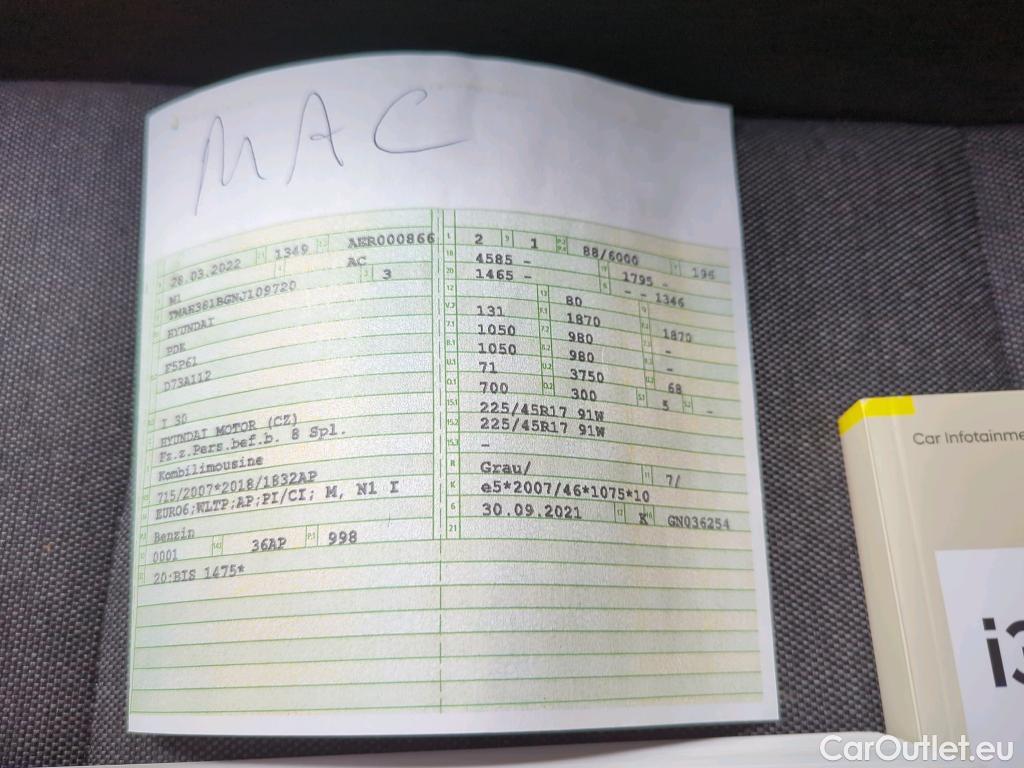 MAC
28.03.2022 1349 AER000866
M1 AC
3
HYUNDAI
PDE
F5P61
D73A112
I 30
HYUNDAI MOTOR (CZ)
Fz.z.Pers.bef.b. 8 Spl.
Kombilimousine
715/2007*2018/1832AP
EURO6;WLTP;AP;PI/CI; M, N1 I
Benzin
0001 36AP 998
20:BIS 1475*
2 1 88/6000 196
4585 - 1795 -
1465 - - - 1346
80
131 1870 1870
1050 980 -
1050 980 -
71 3750 68
700 300 5 -
225/45R17 91W
225/45R17 91W
-
Grau/ 7/
e5*2007/46*1075*10
30.09.2021 K GN036254
21
Car Infotainme
i3
CarOutlet.eu